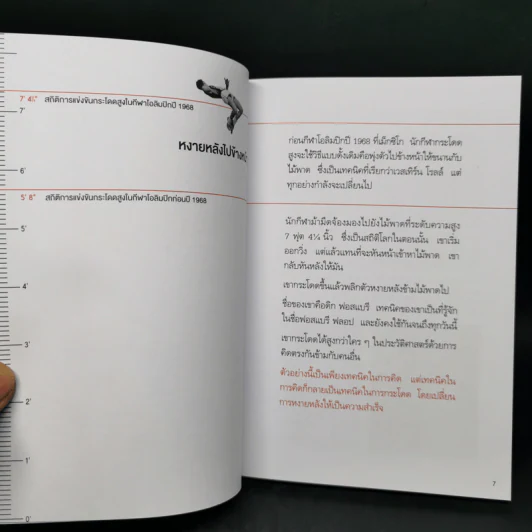 7' 4¼" สถิติการแข่งขันกระโดดสูงในกีฬาโอลิมปิกปี 1968
7'
หงายหลังไปข้างหน้
6'
5' 8" สถิติการแข่งขันกระโดดสูงในกีฬาโอลิมปิกก่อนปี 1968
5'
4'
3'
2'
1'
0'
ก่อนกีฬาโอลิมปิกปี 1968 ที่เม็กซิโก นักกีฬากระโดด
สูงจะใช้วิธีแบบดั้งเดิมคือพุ่งตัวไปข้างหน้าให้ขนานกับ
ไม้พาด ซึ่งเป็นเทคนิคที่เรียกว่าเวสเทิร์น โรลล์ แต่
ทุกอย่างกำลังจะเปลี่ยนไป
นักกีฬาม้ามืดจ้องมองไปยังไม้พาดที่ระดับความสูง
7 ฟุต 4¼ นิ้ว ซึ่งเป็นสถิติโลกในตอนนั้น เขาเริ่ม
ออกวิ่ง แต่แล้วแทนที่จะหันหน้าเข้าหาไม้พาด เขา
กลับหันหลังให้มัน
เขากระโดดขึ้นแล้วพลิกตัวหงายหลังข้ามไม้พาดไป
ชื่อของเขาคือดิก ฟอสเบรี เทคนิคของเขาเป็นที่รู้จัก
ในชื่อฟอสเบรี ฟลอป และยังคงใช้กันจนถึงทุกวันนี้
เขากระโดดได้สูงกว่าใคร ๆ ในประวัติศาสตร์ด้วยการ
คิดตรงกันข้ามกับคนอื่น
ตัวอย่างนี้เป็นเพียงเทคนิคในการคิด แต่เทคนิคใน
การคิดก็กลายเป็นเทคนิคในการกระโดด โดยเปลี่ยน
การหงายหลังให้เป็นความสำเร็จ
7